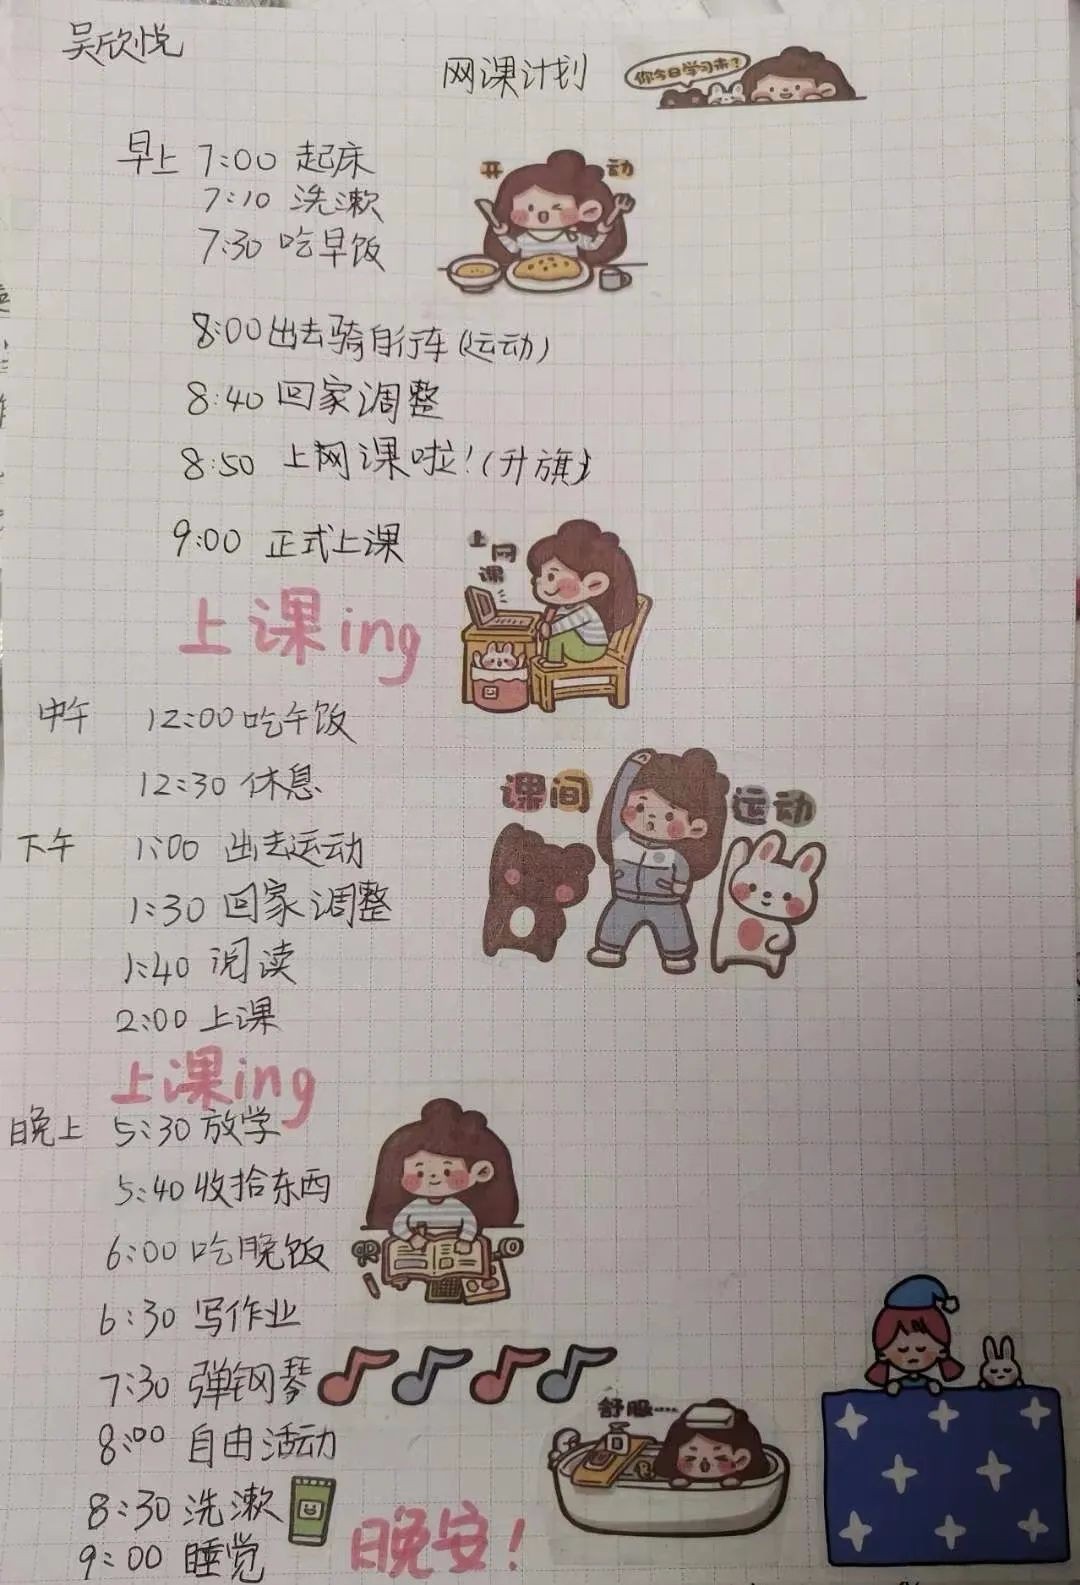 吴欣悦
网课计划
你今日学习来?
早上 7:00 起床
7:10 洗漱
7:30 吃早饭
开动
8:00出去骑自行车(运动)
8:40 回家调整
8:50 上网课啦!(升旗)
9:00 正式上课
上网课
上课ing
中午 12:00吃午饭
12:30 休息
课间运动
下午 1:00 出去运动
1:30 回家调整
1:40 阅读
2:00 上课
上课ing
晚上 5:30 放学
5:40 收拾东西
6:00 吃晚饭
6:30 写作业
7:30 弹钢琴
8:00 自由活动
舒服……
8:30 洗漱
9:00 睡觉
晚安!